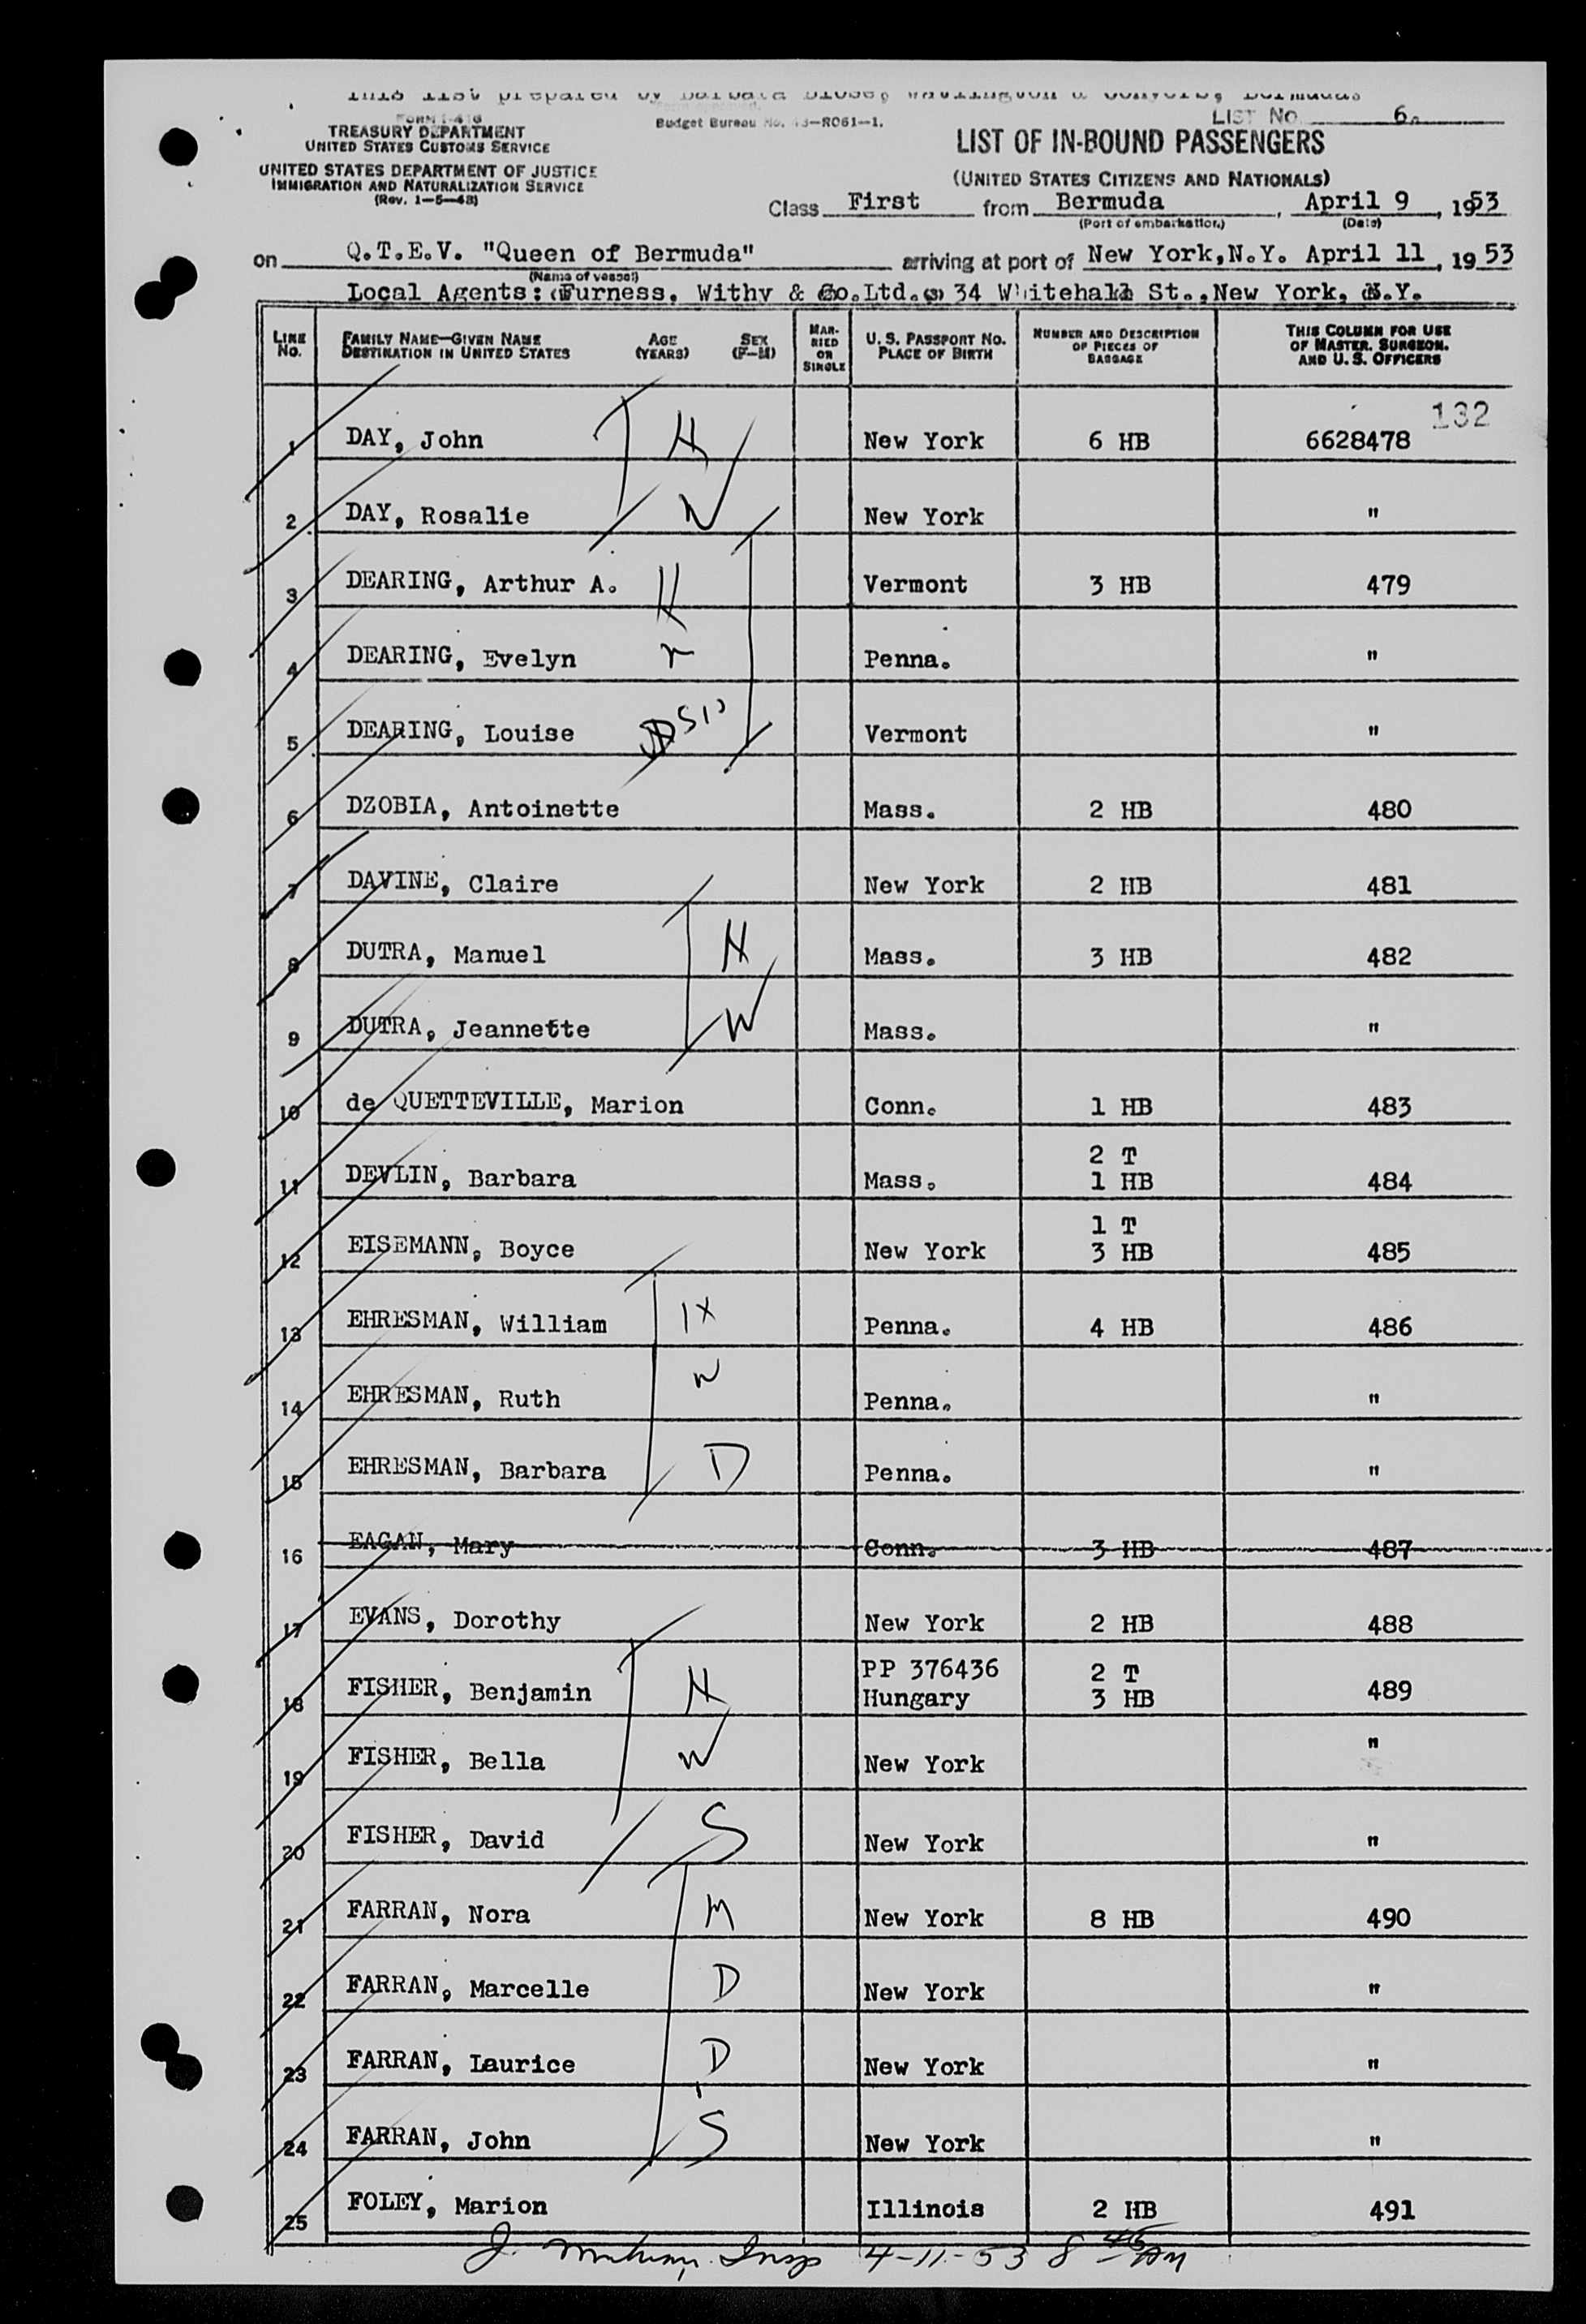 This list prepared by Barbara Blose, Watlington & Conyers, Bermudas
FORM I-416
TREASURY DEPARTMENT
UNITED STATES CUSTOMS SERVICE
UNITED STATES DEPARTMENT OF JUSTICE
IMMIGRATION AND NATURALIZATION SERVICE
(Rev. 1-5-48)
Budget Bureau No. 43-R061-1.
LIST No. 6.
LIST OF IN-BOUND PASSENGERS
(UNITED STATES CITIZENS AND NATIONALS)
Class First from Bermuda, April 9, 1953
(Port of embarkation) (Date)
on Q.T.E.V. "Queen of Bermuda" arriving at port of New York, N.Y. April 11, 1953
(Name of vessel)
Local Agents: Furness, Withy & Co.Ltd. 34 Whitehall St., New York, N.Y.
LINE No. FAMILY NAME—GIVEN NAME DESTINATION IN UNITED STATES AGE (YEARS) SEX (F-M) MARRIED OR SINGLE U. S. PASSPORT NO. PLACE OF BIRTH NUMBER AND DESCRIPTION OF PIECES OF BAGGAGE THIS COLUMN FOR USE OF MASTER, SURGEON, AND U. S. OFFICERS
132
1 DAY, John H New York 6 HB 6628478
2 DAY, Rosalie W New York "
3 DEARING, Arthur A. H Vermont 3 HB 479
4 DEARING, Evelyn Penna. "
5 DEARING, Louise Vermont "
6 DZOBIA, Antoinette Mass. 2 HB 480
7 DAVINE, Claire New York 2 HB 481
8 DUTRA, Manuel H Mass. 3 HB 482
9 DUTRA, Jeannette W Mass. "
10 de QUETTEVILLE, Marion Conn. 1 HB 483
11 DEVLIN, Barbara Mass. 2 T 1 HB 484
12 EISEMANN, Boyce New York 1 T 3 HB 485
13 EHRESMAN, William H Penna. 4 HB 486
14 EHRESMAN, Ruth W Penna. "
15 EHRESMAN, Barbara D Penna. "
16 EAGAN, Mary Conn. 3 HB 487
17 EVANS, Dorothy New York 2 HB 488
18 FISHER, Benjamin H PP 376436 Hungary 2 T 3 HB 489
19 FISHER, Bella W New York "
20 FISHER, David S New York "
21 FARRAN, Nora M New York 8 HB 490
22 FARRAN, Marcelle D New York "
23 FARRAN, Laurice D New York "
24 FARRAN, John S New York "
25 FOLEY, Marion Illinois 2 HB 491
J. Insp 4-11-53 8 45 AM